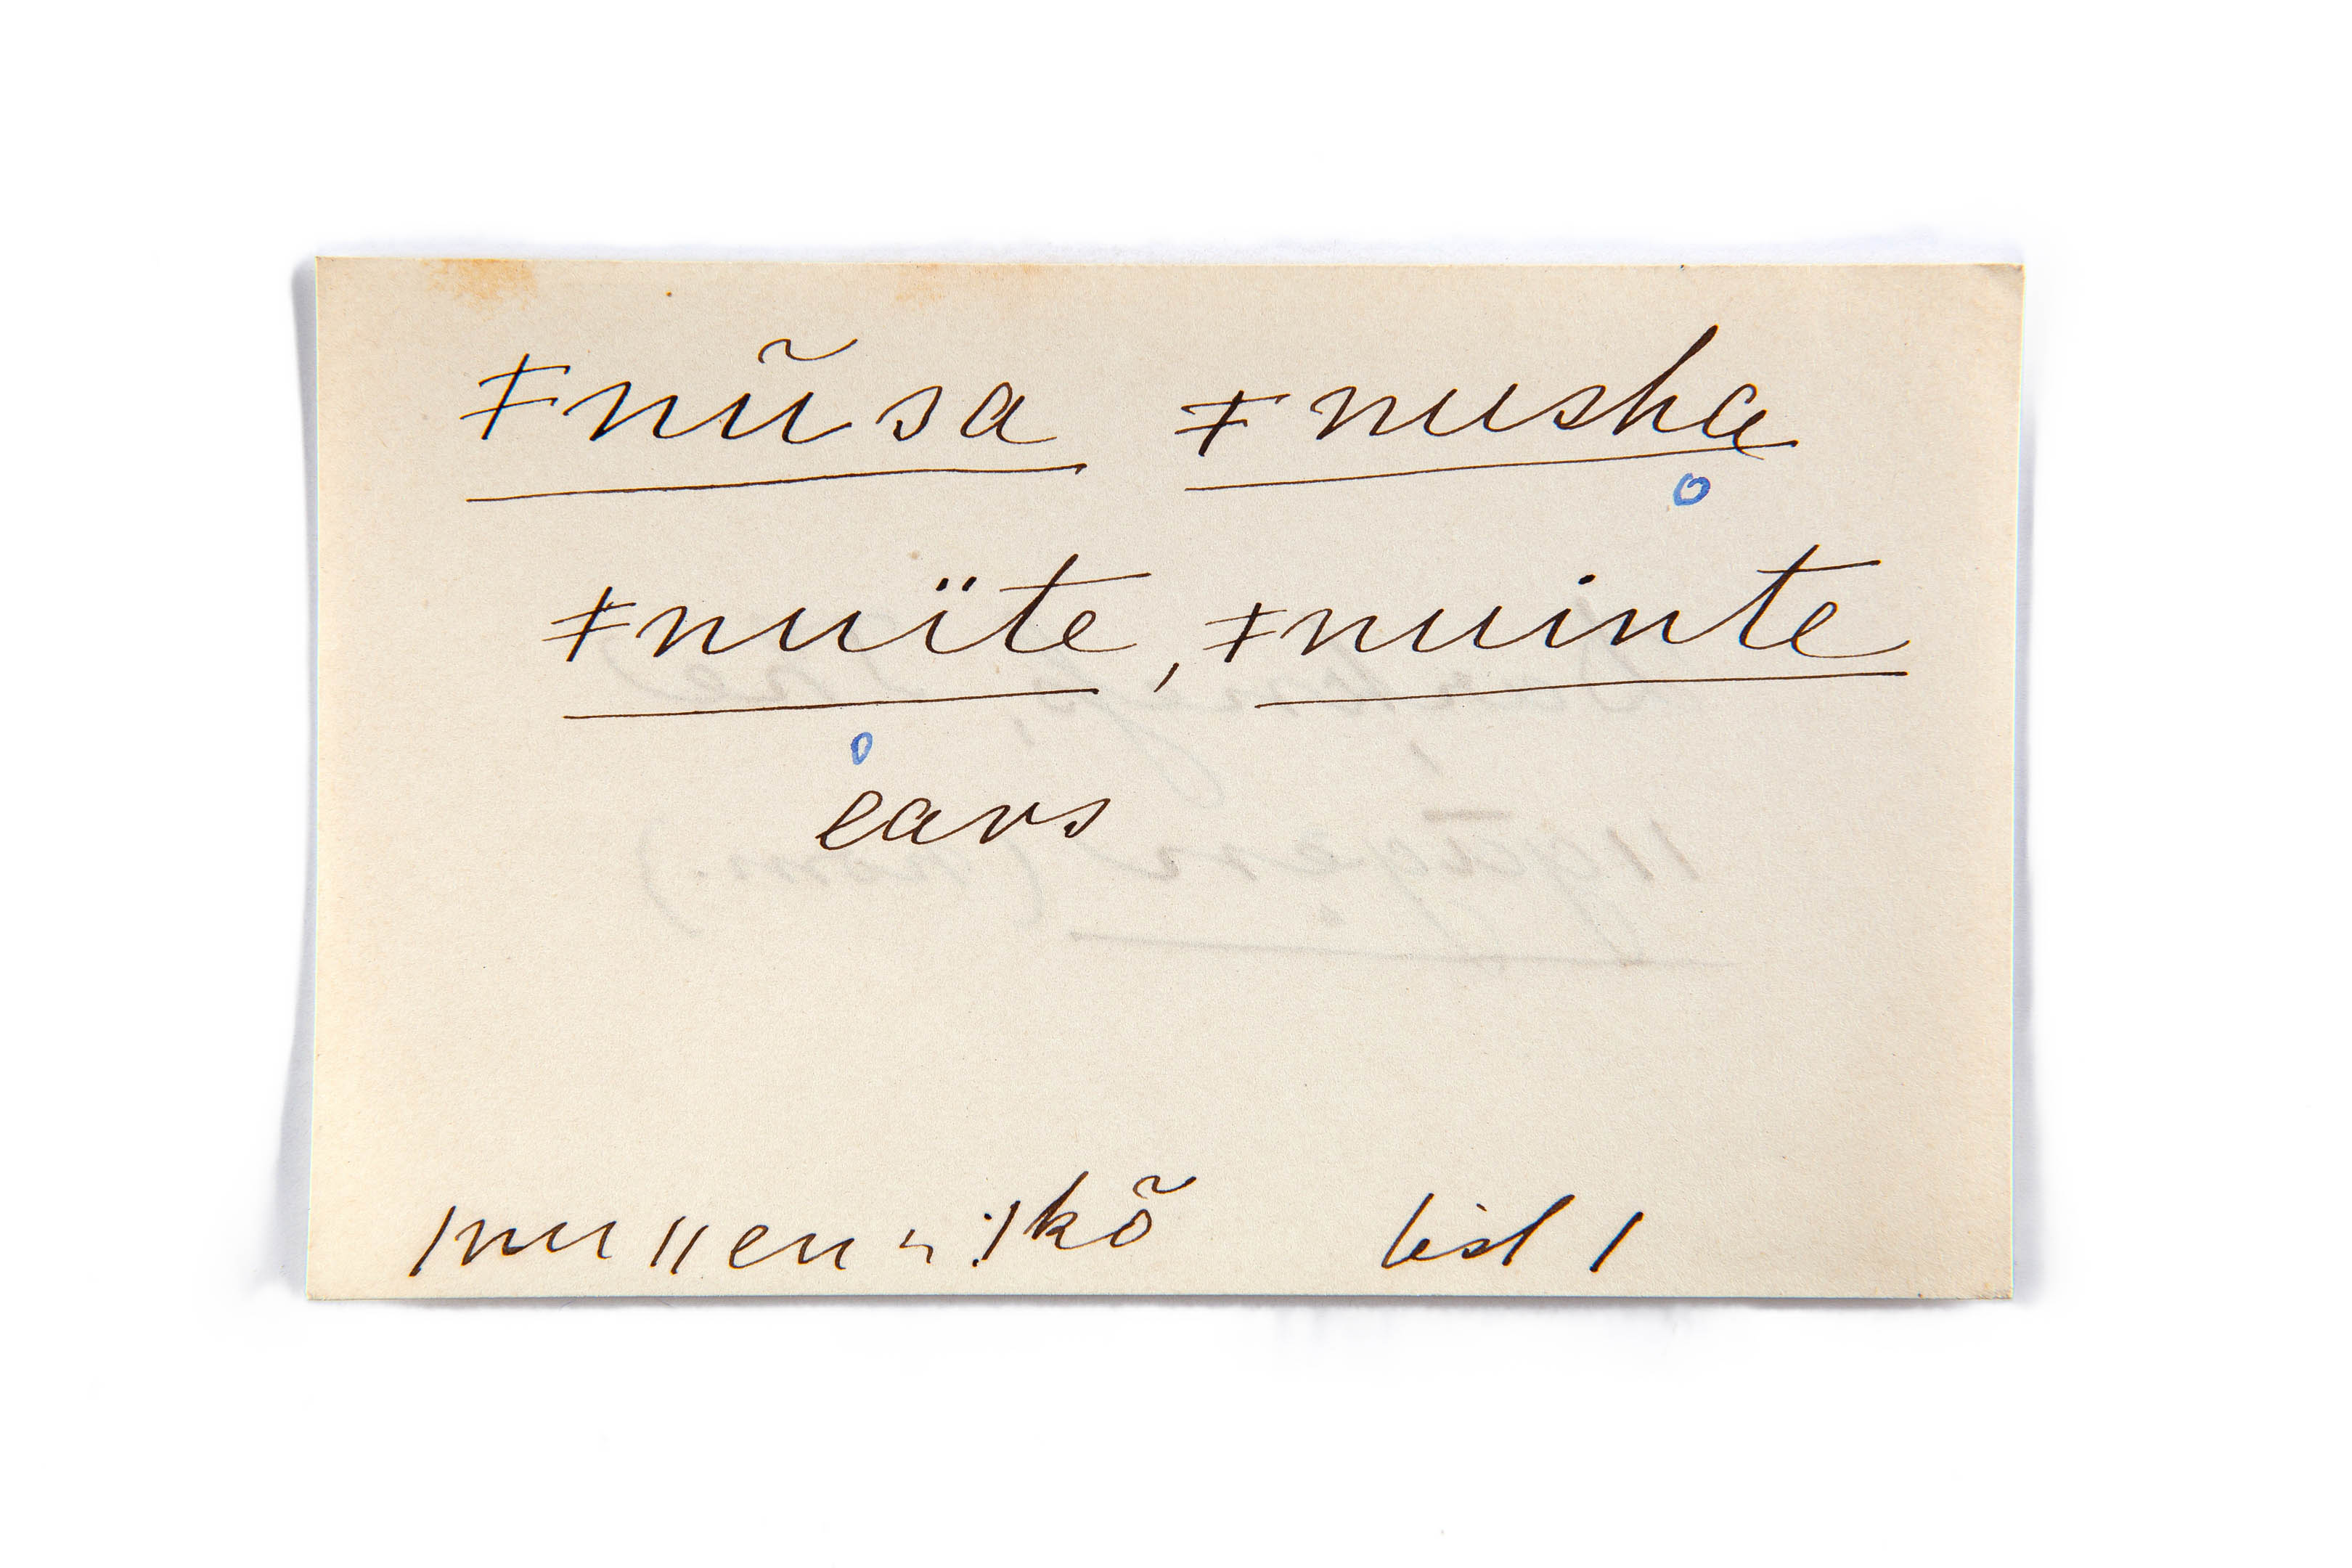 ǂnũsa ǂnusha
ǂnuïte, ǂnuinte
ears
ǀnu ǁen list 1